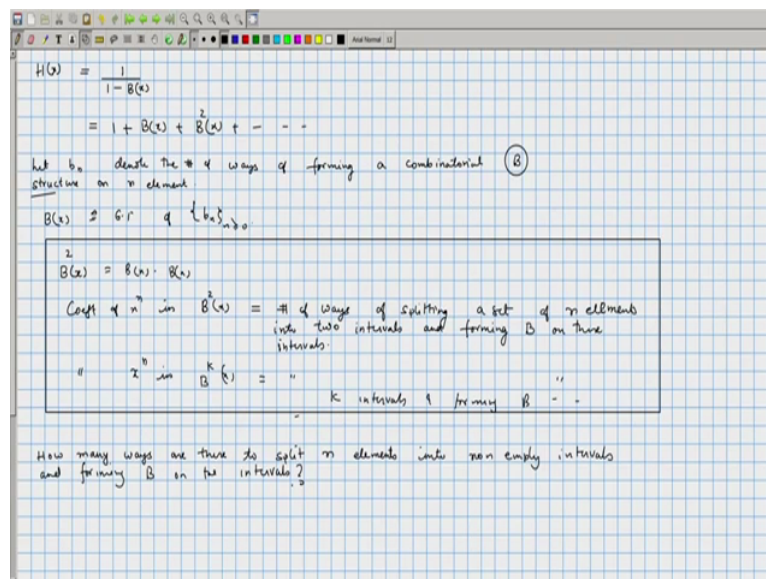 Arial Normal 12
H(x) = 1 / 1 - B(x)
= 1 + B(x) + B²(x) + - - -
Let bₙ denote the # of ways of forming a combinatorial B
structure on n element
B(x) = G.F of {bₙ}ₙ≥₀.
B²(x) = B(x) . B(x)
Coeft of xⁿ in B²(x) = # of ways of splitting a set of n ellments
into two intervals and forming B on these
intervals.
" xⁿ in Bᵏ(x) = " "
k intervals & forming B - -
How many ways are there to split n elements into non empty intervals
and forming B on the intervals?